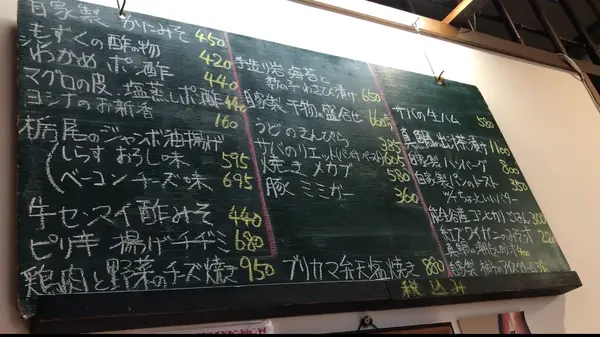 自家製 かにみそ 450
もずくの酢の物 420
わかめ ポン酢 440
マグロの皮 塩蒸しポン酢
ヨシナのお新香 160
栃尾のジャンボ油揚げ
(しらす おろし味 595
ベーコンチーズ味 695
牛センマイ酢みそ 440
ピリ辛 揚げチヂミ 680
鶏肉と野菜のチーズ焼き 950
手造り岩海苔と
数の子わさび漬け 650
自家製 干物の盛合せ
うどのきんぴら 385
サバのリエット 605
焼き メカブ 580
豚 ミミガー 360
ブリカマ弁天塩焼き 880
サバの生ハム 580
真鯛の出汁茶漬け 1100
自家製 ハンバーグ 800
自家製パンのトースト 350
税込み